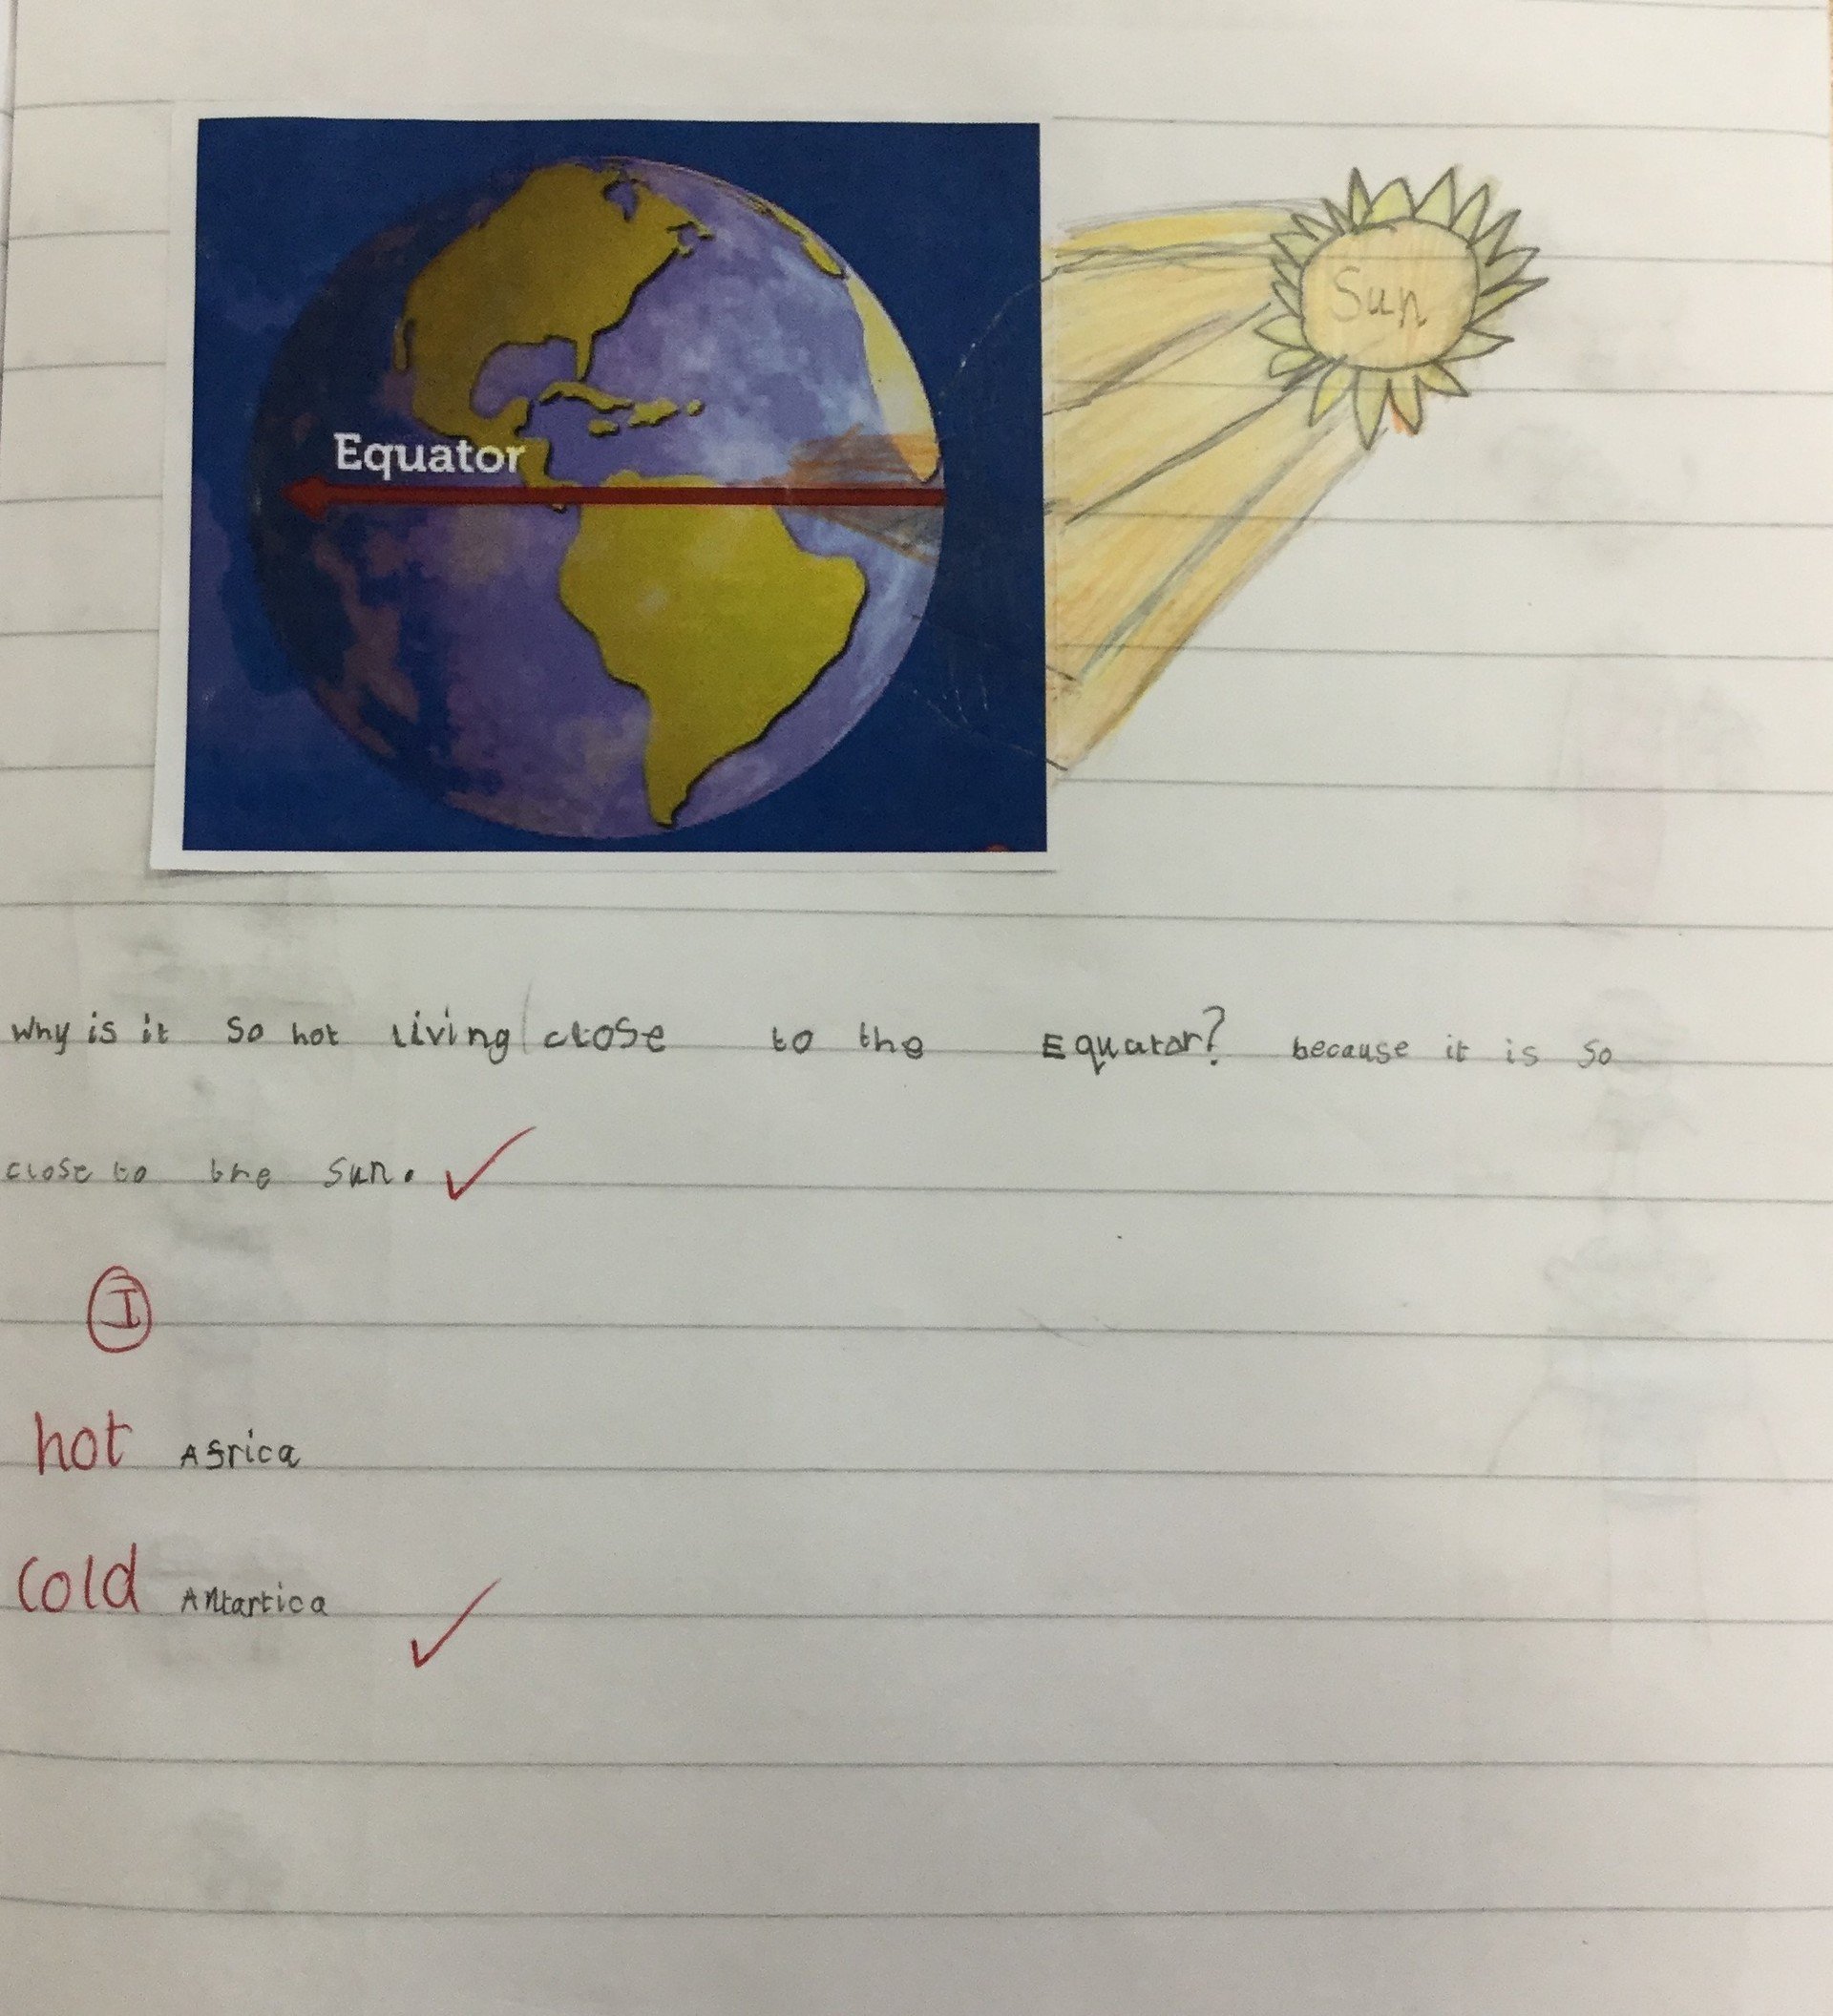 Sun
Equator
Why is it so hot living close to the Equator? because it is so
close to the sun.
I
hot Africa
Cold Antartica